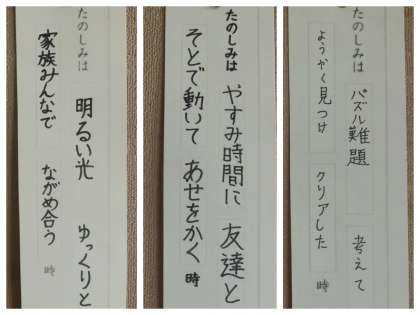 たのしみは 明るい光 ゆっくりと
家族みんなで ながめ合う 時
たのしみは やすみ時間に 友達と
そとで動いて あせをかく 時
たのしみは パズル難題 考えて
ようやく見つけ クリアした 時